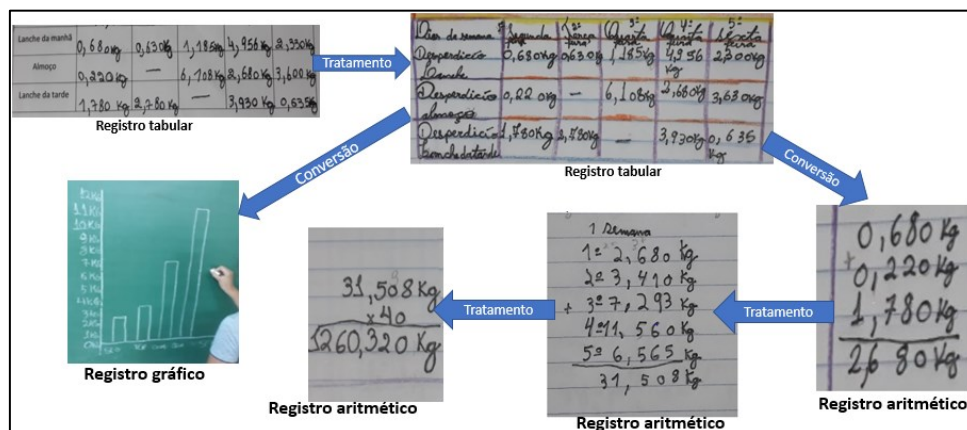 Lanche da manhã 0,680kg 0,630kg 1,185kg 4,956kg 2,330kg
Almoço 0,220kg — 6,108kg 2,680kg 3,600kg
Lanche da tarde 1,780 Kg 2,780 Kg — 3,930 Kg 0,635
Registro tabular
Tratamento
Dias de semana Segunda feira 2ª Terça feira 3ª Quarta feira 4ª Quinta feira 5ª sexta feira
Desperdício Lanche 0,680Kg 0,630Kg 1,185Kg 4,956 Kg
Desperdício almoço 0,220Kg — 6,108Kg 2,680Kg 3,630Kg
Desperdício lanche da tarde 1,780Kg 2,780Kg — 3,930Kg 0,635 Kg
Registro tabular
Conversão
Conversão
12Kg
11Kg
10Kg
9Kg
8Kg
7Kg
6Kg
5Kg
4Kg
3Kg
2Kg
1Kg
0Kg
Registro gráfico
31,508 Kg
x40
1260,320 Kg
Registro aritmético
Tratamento
1 Semana
1ª 2,680 Kg
2ª 3,410 Kg
+ 3ª 7,293 Kg
4ª 11,560 Kg
5ª 6,565 Kg
31,508 Kg
Registro aritmético
Tratamento
0,680 Kg
+ 0,220 Kg
1,780 Kg
2,680 Kg
Registro aritmético